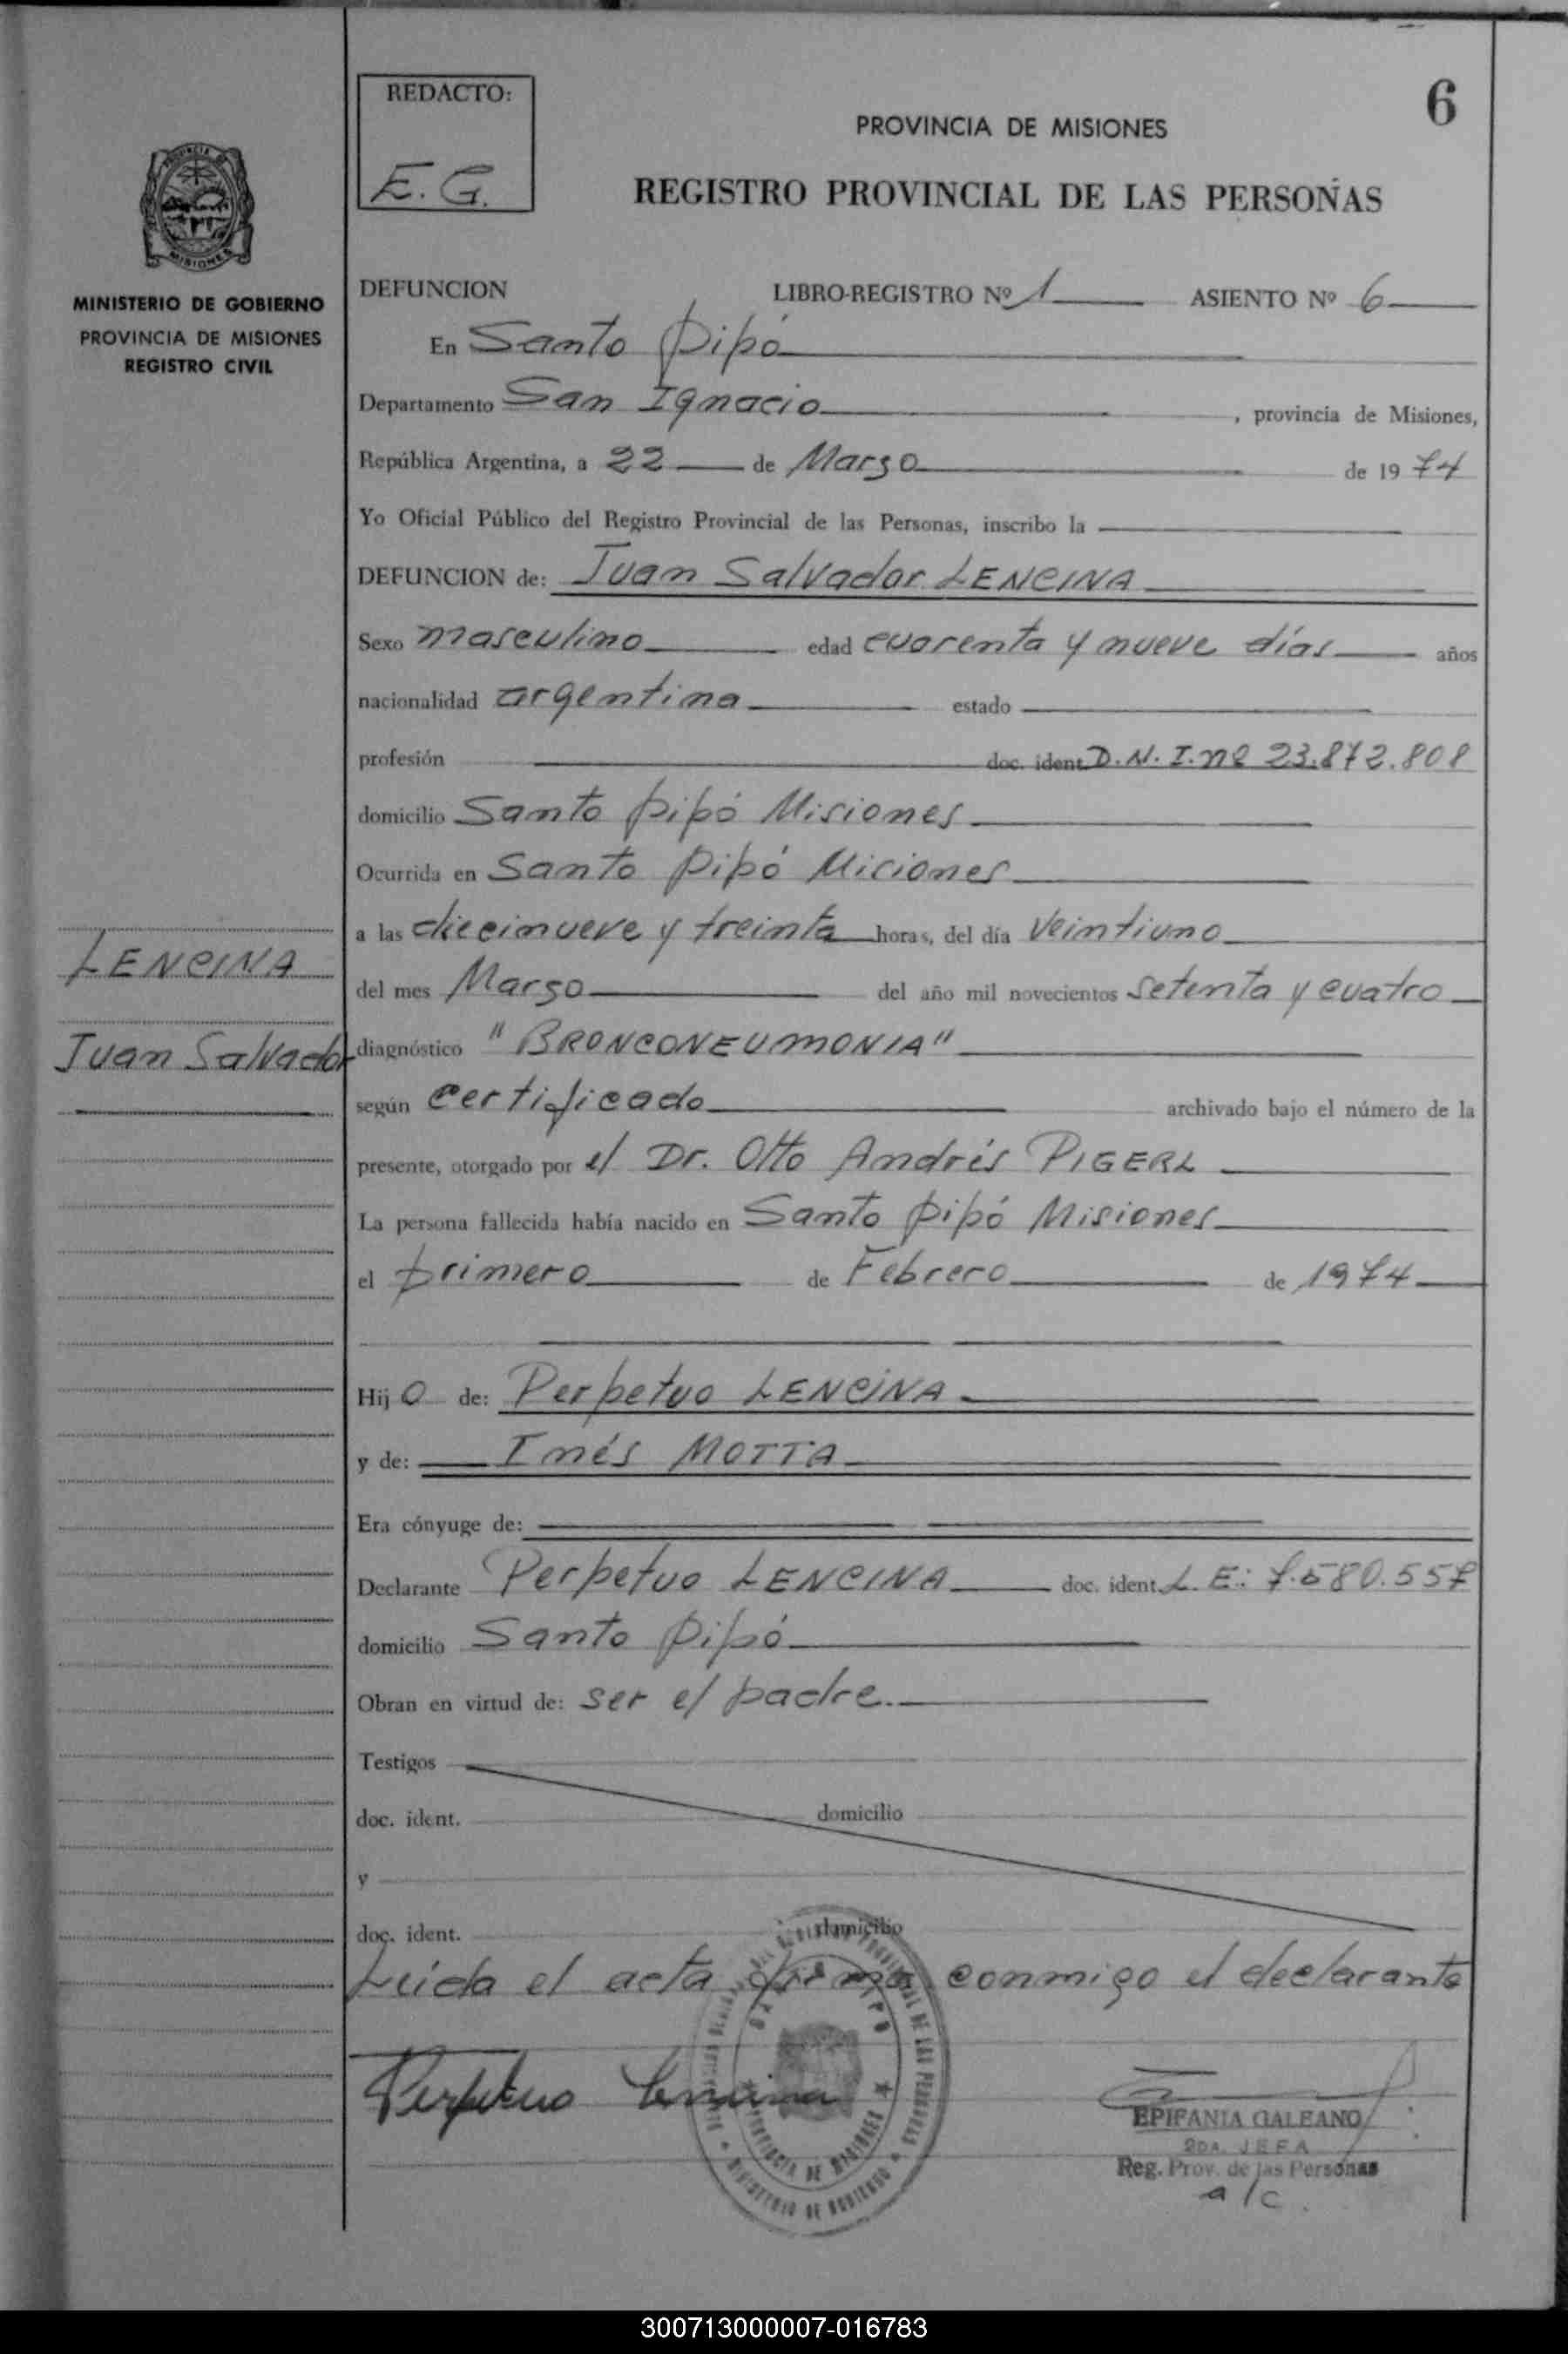 REDACTO:
E. G.
6
PROVINCIA DE MISIONES
REGISTRO PROVINCIAL DE LAS PERSONAS
PROVINCIA DE
MISIONES
MINISTERIO DE GOBIERNO
PROVINCIA DE MISIONES
REGISTRO CIVIL
DEFUNCION LIBRO-REGISTRO Nº 1 ASIENTO Nº 6
En Santo Pipó
Departamento San Ignacio, provincia de Misiones,
República Argentina, a 22 de Marzo de 1974
Yo Oficial Público del Registro Provincial de las Personas, inscribo la
DEFUNCION de: Juan Salvador LENCINA
Sexo masculino edad cuarenta y nueve días años
nacionalidad argentina estado
profesión doc. ident. D. N. I. nº 23.872.808
domicilio Santo Pipó Misiones
Ocurrida en Santo Pipó Misiones
a las diecinueve y treinta horas, del día Veintiuno
del mes Marzo del año mil novecientos setenta y cuatro
diagnóstico "BRONCONEUMONIA"
según certificado archivado bajo el número de la
presente, otorgado por el Dr. Otto Andrés PIGERL
La persona fallecida había nacido en Santo Pipó Misiones
el primero de Febrero de 1974
Hijo de: Perpetuo LENCINA
y de: Inés MOTTA
Era cónyuge de:
Declarante Perpetuo LENCINA doc. ident. L. E.: 7.580.557
domicilio Santo Pipó
Obran en virtud de: ser el padre.
Testigos
doc. ident. domicilio
y
doc. ident. domicilio
Leida el acta firma conmigo el declarante
LENCINA
Juan Salvador
Perpetuo Lencina
PROVINCIA DE MISIONES
MINISTERIO DE GOBIERNO
EPIFANIA GALEANO
2DA. JEFA
Reg. Prov. de las Personas
a/c.
300713000007-016783